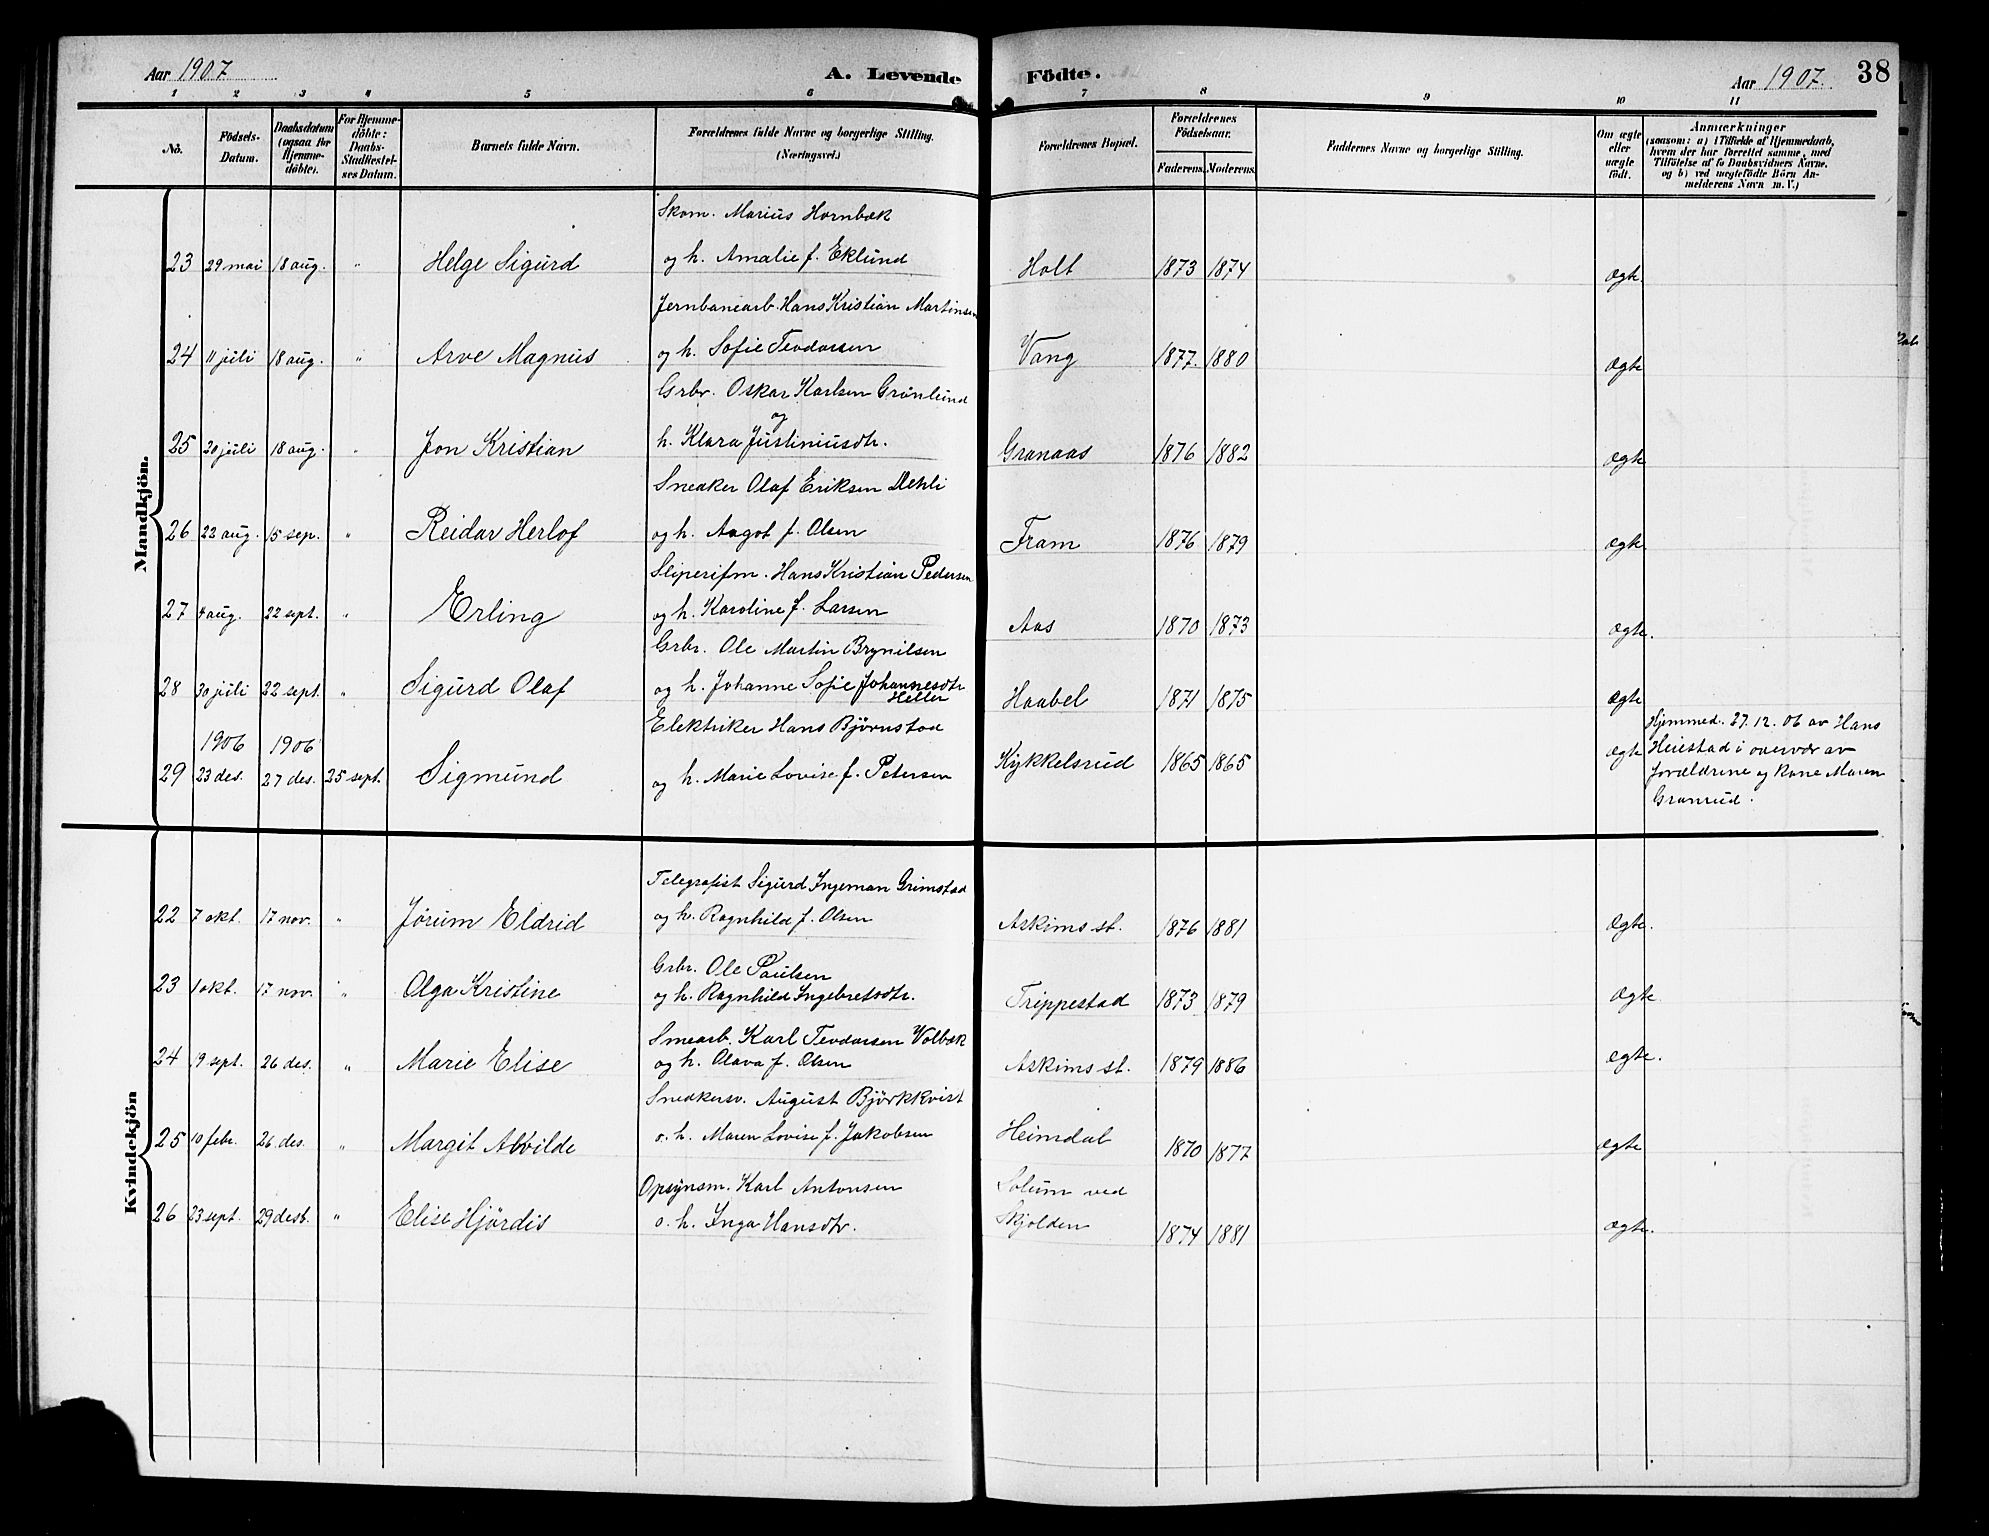 Aar 1907 A. Levende Födte. Aar 1907. 38
1 2 3 4 5 6 7 8 9 10 11
No. Födsels-Datum. Daabsdatum (ogsaa for Hjemme-döbte). For Hjemme-döbte: Daabs-Stadfæstel-ses Datum. Barnets fulde Navn. Forældrenes fulde Navne og borgerlige Stilling. (Næringsvei.) Forældrenes Bopæl. Forældrenes Födselsaar. Faderens. Moderens. Faddernes Navne og borgerlige Stilling. Om ægte eller uægte födt. Anmærkninger (saasom: a) i Tilfælde af Hjemmedaab, hvem der har forrettet samme, med Tilföielse af to Daabsvidners Navne, og b) ved uægtefödte Börn An-melderens Navn m. V.)
Mandkjön.
Skom. Marius Hornbæk
23 29 mai 18 aug. " Helge Sigurd og h. Amalie f. Eklund Holt 1873 1874 Ægte.
Jernbanearb. Hans Kristian Martinsen
24 11 juli 18 aug. " Arve Magnus og h. Sofie Teodorsen Vang 1877. 1880 Ægte
Grbr. Oskar Karlsen Grönlund
og
25 20 juli 18 aug. " Jon Kristian h. Klara Justiniusdtr. Granaas 1876 1882 Ægte
Snedker Olaf Eriksen Dehli
26 22 aug. 15 sep. " Reidar Herlof og h. Aagot f. Olsen Fram 1876 1879 Ægte
Sliperifm. Hans Kristian Pedersen
27 4 aug. 22 sept. " Erling og h. Karoline f. Larsen Aas 1870 1873 Ægte.
Grbr. Ole Martin Brynilsen
28 30 juli 22 sept. " Sigurd Olaf og h. Johanne Sofie Johannesdtr Heller Haabel 1871 1875 Ægte
Elektriker Hans Björnstad
1906 1906
29 23 des. 27 des. 25 sept. Sigmund og h. Marie Lovise f. Petersen Kykkelsrud 1865 1865 Ægte
Hjemmed. 27. 12. 06 av Hans
Heiestad i overvær av
forældrene og kone Maren
Granrud.
Kvindekjön
Telegrafist Sigurd Ingeman Grimstad
22 7 okt. 17 nov. " Jorum Eldrid og h. Ragnhild f. Olsen Askims st. 1876 1881 Ægte.
Grbr. Ole Paulsen
23 1 okt. 17 nov. " Olga Kristine og h. Ragnhild Ingebretsdtr. Trippestad 1873 1879 Ægte.
Smearb. Karl Teodorsen Volbæk
24 19 sept. 26 des. " Marie Elise og h. Olava f. Olsen Askims st. 1879 1886 Ægte.
Snedkersv. August Björkkvist
25 10 febr. 26 des. " Margit Alvilde o. h. Maren Lovise f. Jakobsen Heimdal 1870 1877 Ægte
Opsynsm. Karl Antonsen Solum ved
26 23 sept. 29 desb. " Elise Hjördis o. h. Inga Hansdtr. Skjolden 1874 1881 Ægte.